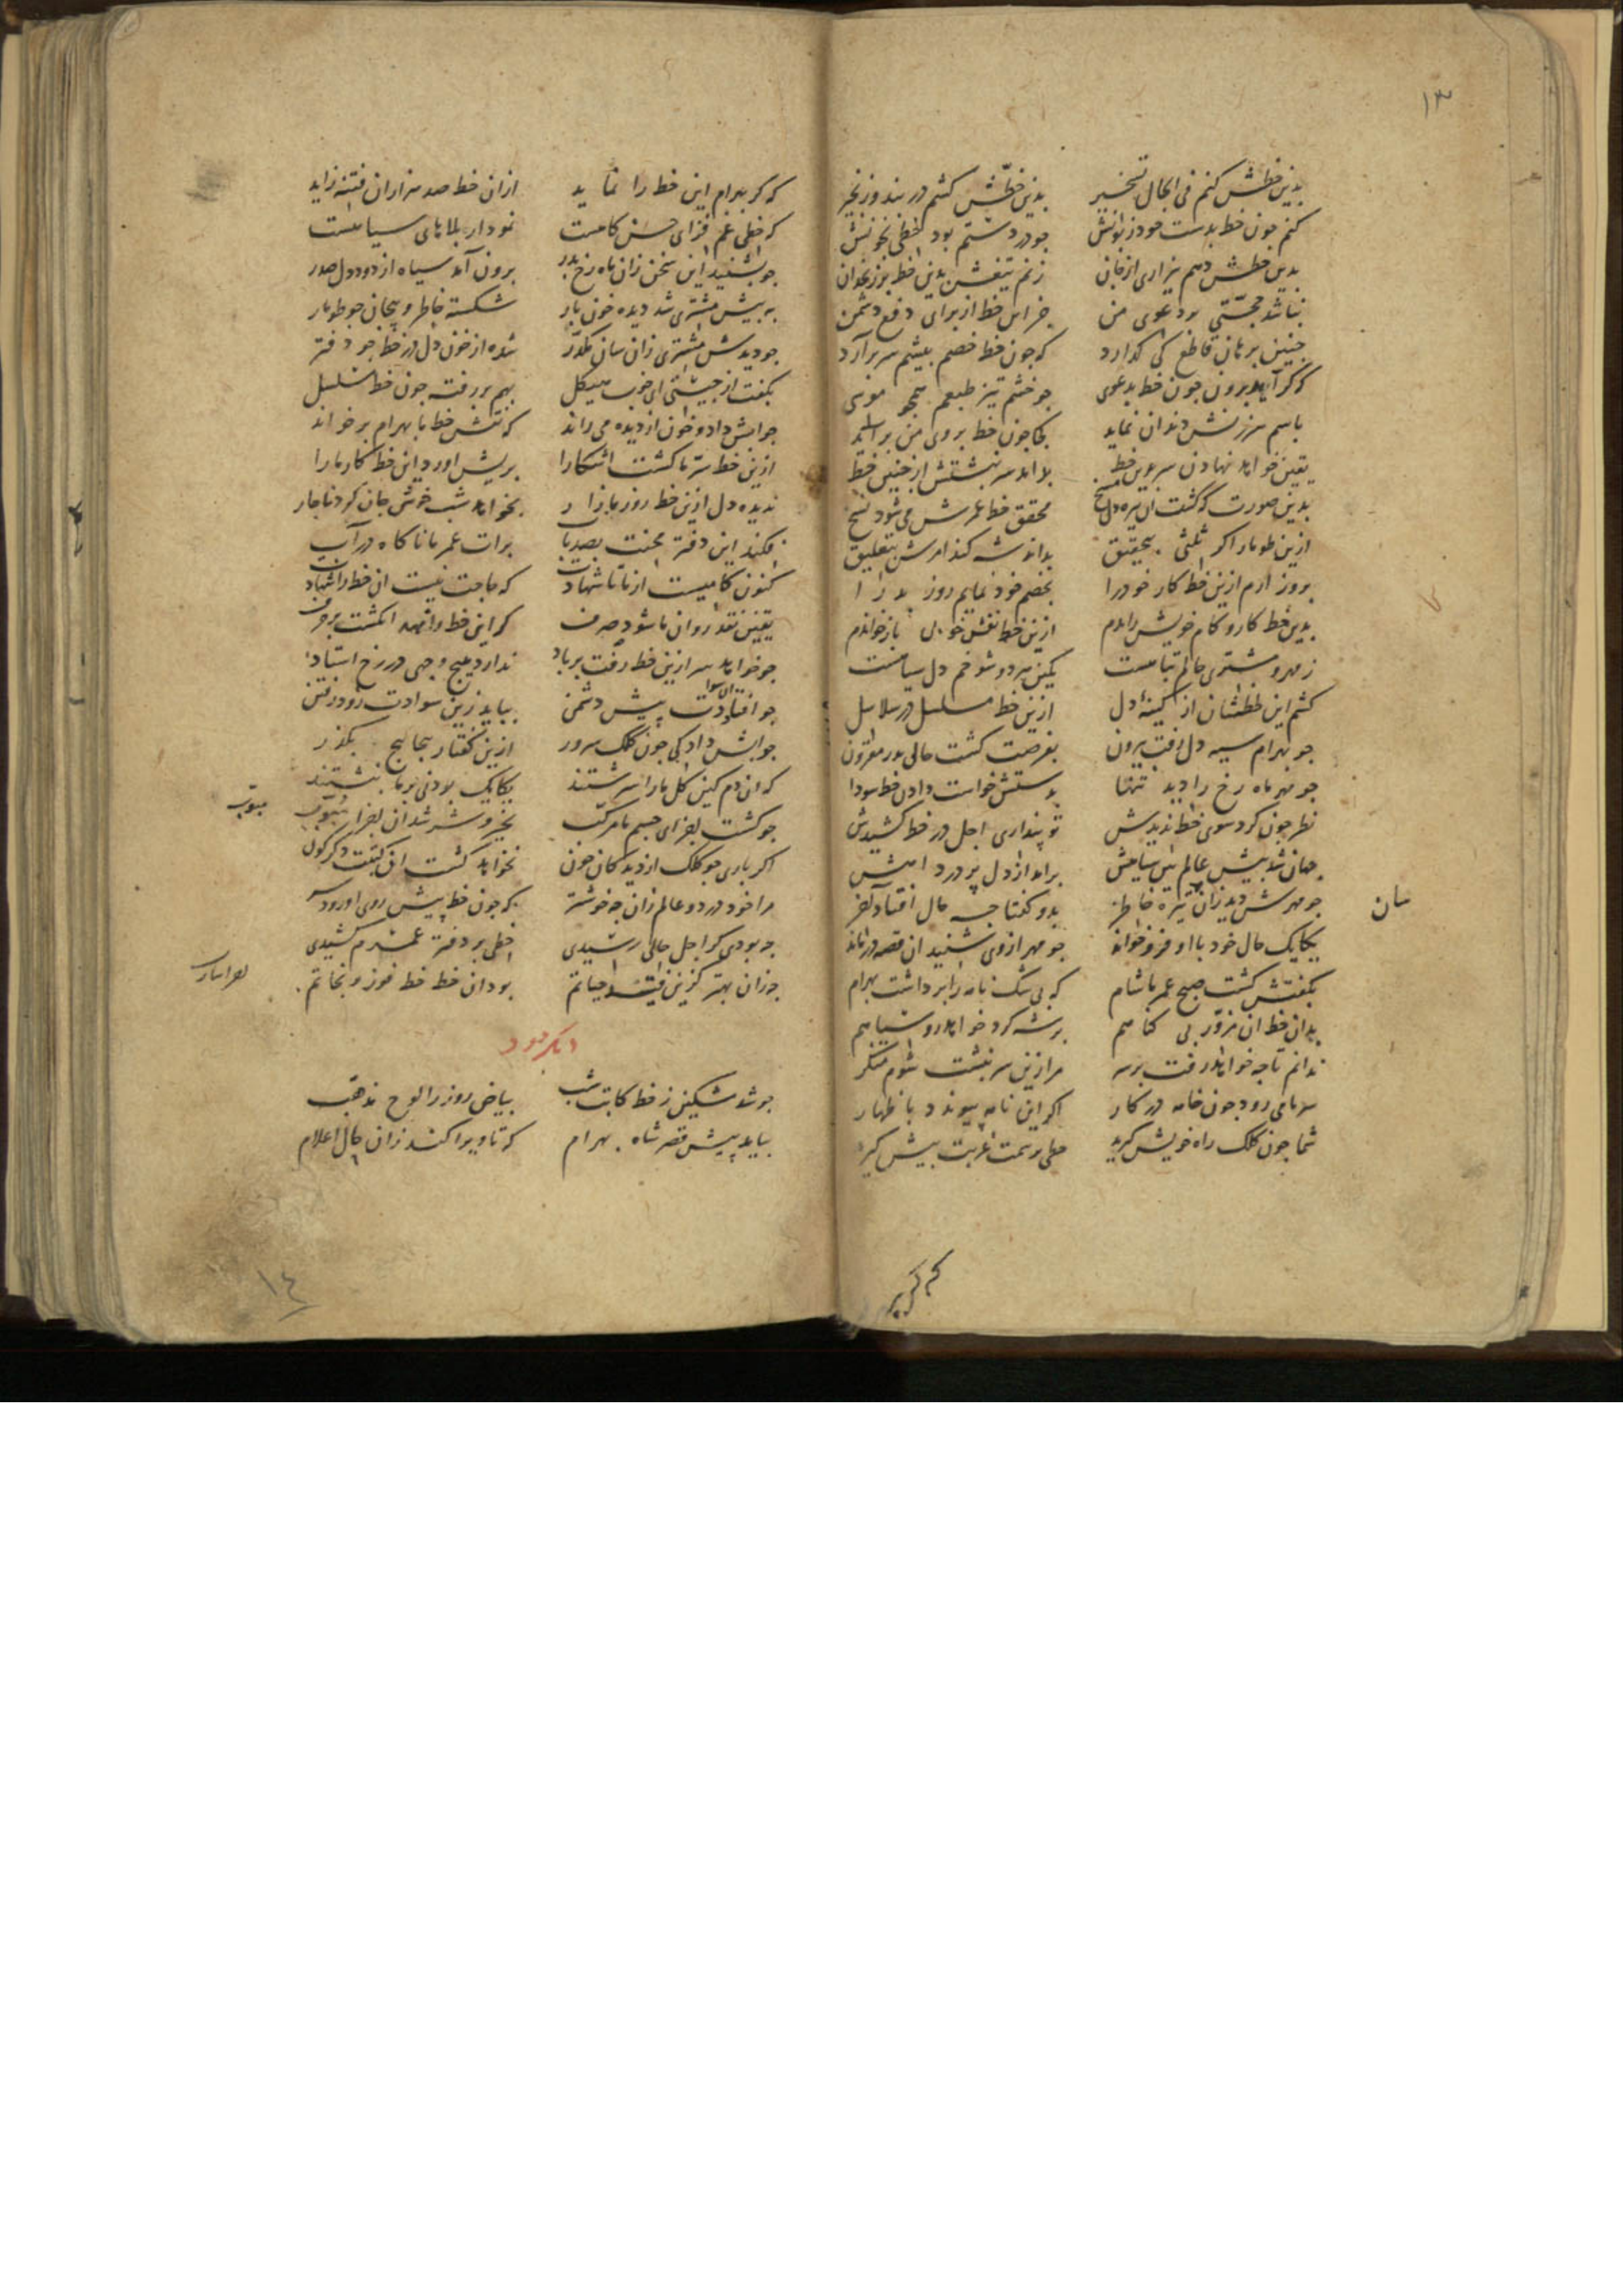 ۱۳
بدین خطش کنم فی الحال تسخیر بدین خطش کشم در بند و زنجیر
کنم چون خط بدست خود زبونش چو در دستم بود خطی بخونش
بدین خطش دهم بیزاری از جان زنم تیغش بدین خط بر زنخدان
نباشد حجتی بر دعوی من جز این خط از برای دفع دشمن
چنین برهان قاطع کی گذارد که چون خط خصم پیشم سر برآرد
که گر آید برون چون خط بدعوی چو خشم تیز طبعم همچو موسی
باسم سرزنش دندان نماید
یقین خواهد نهادن سر برین خط بداند سر نبشتش از چنین خط
بدین صورت که گشت آن تیره دل مسخ محقق خط عمرش می شود نسخ
ازین طومار اگر ثلثی بتحقیق بداند شه کند امرش بتعلیق
بروز آرم ازین خط کار خود را بخصم خود نمایم روز بد را
بدین خط کار و کام خویش رانم ازین خط نقش خوبی باز خوانم
ز مهر و مشتری عالم تباهست
کشم این خطشان از کینه دل ازین خط مسلسل در سلاسل
چو بهرام سیه دل رفت بیرون بفرصت گشت حالی بدر مقرون
چو مهر ماه رخ را دید تنها بدستش خواست دادن خط سودا
نظر چون کرد سوی خط ندیدش تو پنداری اجل در خط کشیدش
جهان شد پیش عالم بین سیاهش برآمد از دل پر درد آهش
چو مهرش دید زان تیره خاطر بدو گفتا چه حال افتاد آخر
یکایک حال خود با او فرو خواند چو مهر از وی شنید آن قصه درماند
بگفتش گشت صبح عمر ما شام که بی شک نامه را برداشت بهرام
بدان خط آن مزور بی گناهم بر شه کرد خواهد رو سیاهم
ندانم تا چه خواهد رفت بر سر مرا زین سر نبشت شوم منکر
سر ما می رود چون خامه در کار اگر این نامه پیوندد باظهار
شما چون کلک راه خویش گیرید
که گر بهرام این خط را نماید ازان خط صد هزاران فتنه زاید
که خطی غم فزای حسن کاهست نمودار بلاهای سیاهست
چو بشنید این سخن زان ماه رخ بدر برون آمد سیاه از دود دل صدر
به پیش مشتری شد دیده خون بار شکسته خاطر و پیچان چو طومار
چو دیدش مشتری زان سان مکدر شده از خون دل در خط چو دفتر
بگفت از چیستی ای خوب هیکل بهم بر رفته چون خط مسلسل
جوابش داد و خون از دیده می راند که نتش خط ما بهرام بر خواند
ازین خط سر ما گشت آشکارا پریش آورد این خط کار ما را
ندیده دل ازین خط روز بازار بخواهد شب خوش جان کرد ناچار
فکند این دفتر محنت بصد باب برات عمر ما ناگاه در آب
یقین نقد روان ما شود صرف گر این خط را نهد انگشت بر حرف
چو خواهد سر ازین خط رفت بر باد ندارد هیچ وجهی در رخ استاد
چو افتادت سواد پیش دشمن بباید زین سوادت زود رفتن
جوابش داد کی چون کلک سرور ازین گفتار پیچاپیچ بگذر
که آن دم کین گل ما را سرشتند یکایک بودنی بر ما نبشتند
چو گشت اجزای جسم ما مرکب بخیر و شر شد آن اجزا مبوب
مبوب
نخواهد گشت آن کتبت دگرگون
مرا خود در دو عالم زان چه خوشتر که چون خط پیش روی او رود سر
چه بودی گر اجل حالی رسیدی خطی بر دفتر عمرم کشیدی
بود آن خط خط فوز و نجاتم
چو شد مشکین ز خط کاتب شب بیاض روز را لوح مذهب
بیامد پیش قصر شاه بهرام که تا ویرا کند زان حال اعلام
۱٤